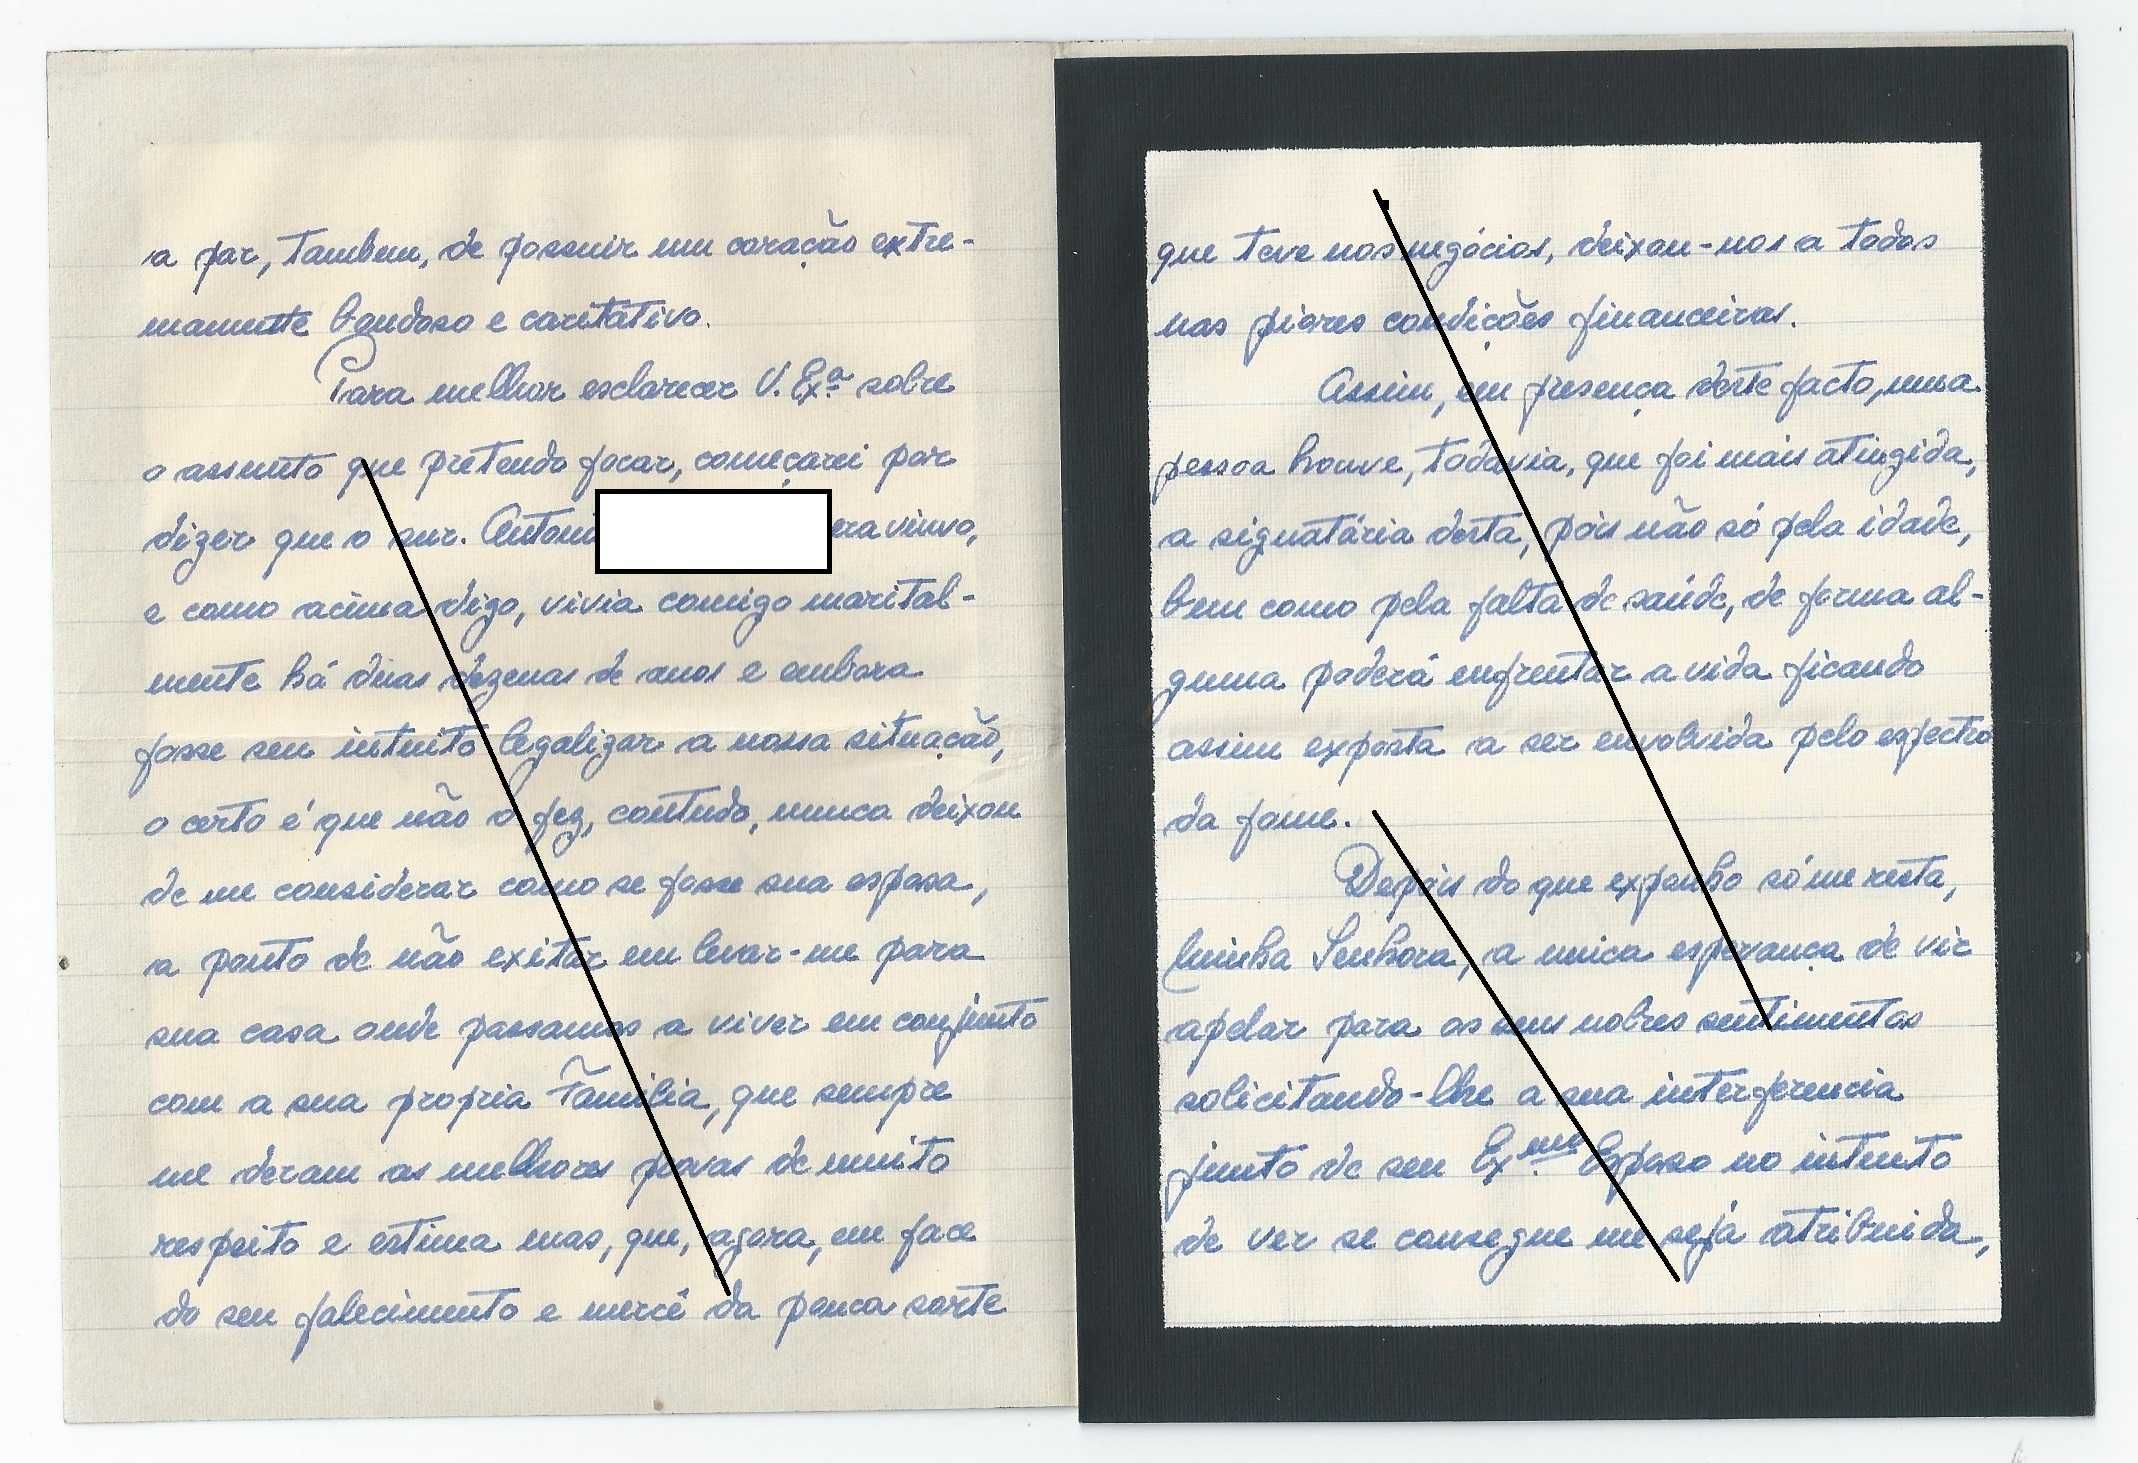 a par, tambem, de possuir um coração extre-
mamente bondoso e caritátivo.
Para melhor esclarecer V. Exª sobre
o assunto que pretendo focar, começarei por
dizer que o snr. Antoni era viuvo,
e como acima digo, vivia comigo marital-
mente há duas dezenas de anos e embora
fosse seu intuito legalizar a nossa situação,
o certo é que não o fez, contudo, nunca deixou
de me considerar como se fosse sua esposa,
a ponto de não exitar em levar-me para
sua casa onde passamos a viver em conjunto
com a sua propria Familia, que sempre
me deram as melhores provas de muito
respeito e estima mas, que, agora, em face
do seu falecimento e mercê da pouca sorte
que teve nos negócios, deixou-nos a todos
nas piores condições financeiras.
Assim, em presença deste facto, uma
pessoa houve, todavia, que foi mais atingida,
a signatária desta, pois não só pela idade,
bem como pela falta de saúde, de forma al-
guma poderá enfrentar a vida ficando
assim exposta a ser envolvida pelo espectro
da fome.
Depois do que exponho só me resta,
Minha Senhora, a unica esperança de vir
apelar para os seus nobres sentimentos
solicitando-lhe a sua interferencia
junto de seu Ex.mo Esposo no intuito
de ver se consegue me sejá atribuida,